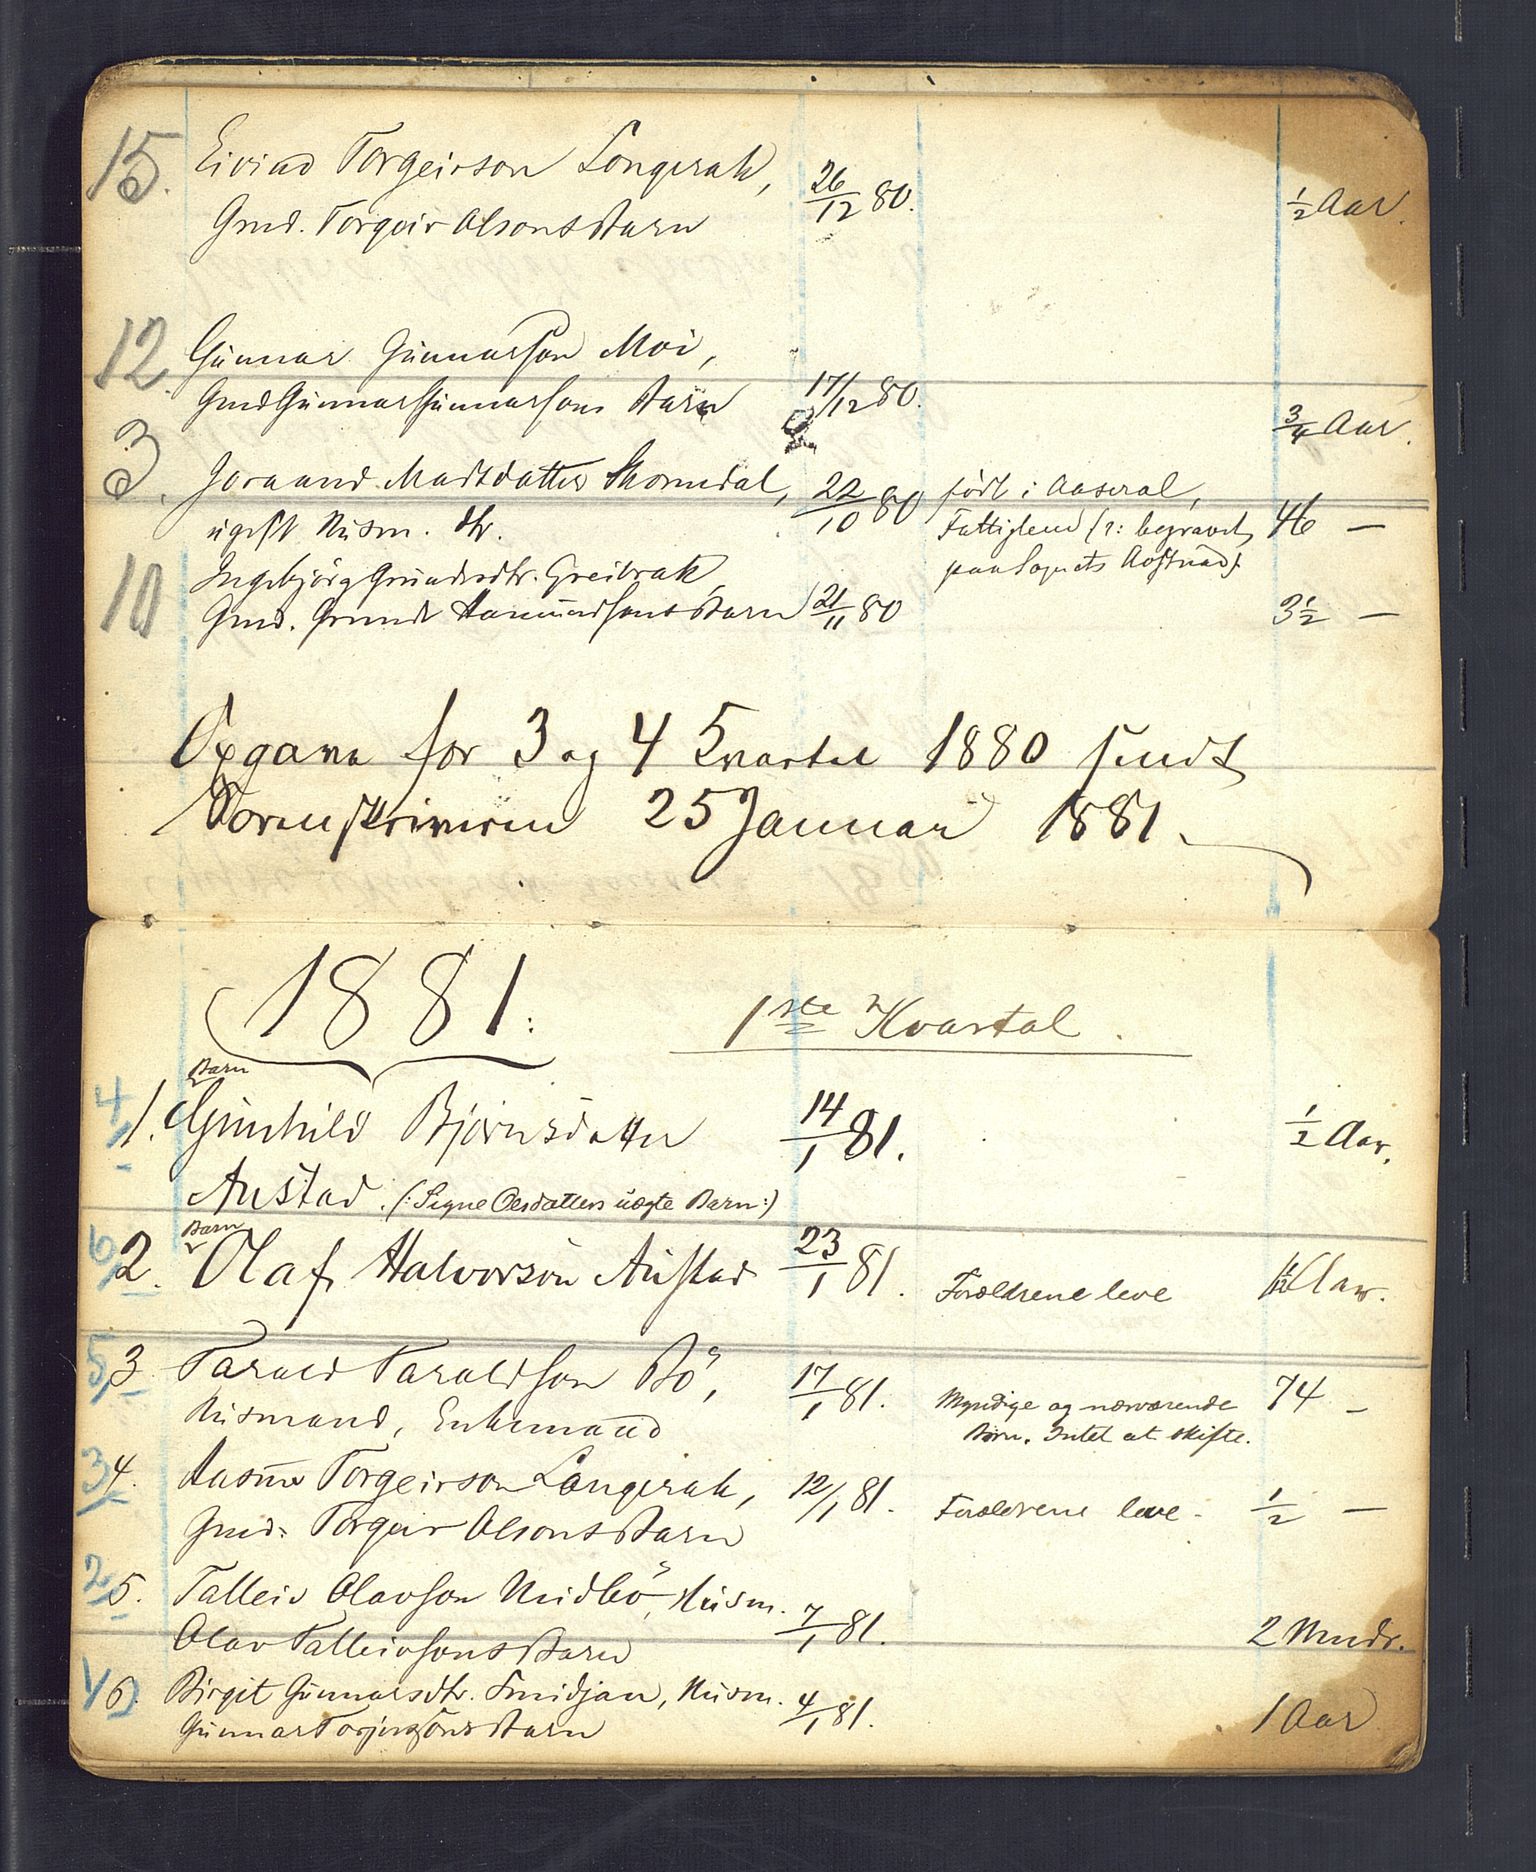 15. Eivind Torgeirson Langerak,
Gmd. Torgeir Olsons Barn 26/12 80. 1/2 Aar.
12 Gunnar Gunnarson Moi,
Gmd Gunnar Gunnarsons Barn 17/12 80. 3/4 Aar.
3. Joraand Madsdatter 22/10 80 født i Aaseral, 46 —
ugift Husm. dtr. Fattiglem (ɔ: begravet
paa Sognets
10 Ingebjörg Gundersdtr. Greibrak,
Gmd. Gunder Aamundsons Barn 21/11 80 3 1/2 —
Opgave for 3 og 4 Kvartal 1880 sendt
Sorenskriveren 25 Januar 1881.
1881: 1ste Kvartal.
Barn
4/ 1. Gunhild Bjørnsdatter 14/1 81. 1/2 Aar.
Austad. (: Signe Olsdatters uægte Barn :)
Barn
6/ 2. Olaf Halvorson Austad 23/1 81. Forældrene leve 1/12 Aar.
5/ 3 Tarald Taraldson Bö, 17/1 81. Myndige og nærværende 74 —
Husmand, Enkemand Børn. Intet at skifte.
3/ 4. Aasm Torgeirson Langerak, 12/1 81. Forældrene leve. 1/2 —
Gmd: Torgeir Olsons Barn
2/ 5. Talleiv Olavson Midbö, Husm. 7/1 81. 2 Mndr.
Olav Talleivsons Barn
1/ 6). Birgit Gunnarsdtr. Smidjan, Husm. 4/1 81. 1 Aar
Gunnar Torjussons Barn